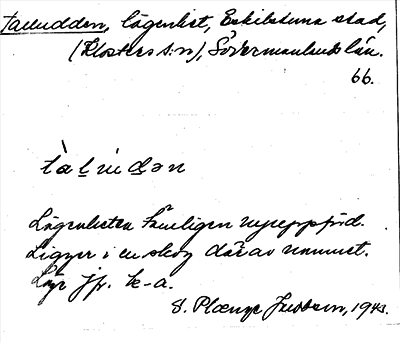 Talludden, lägenhet, Eskilstuna stad,
(Klosters s:n), Södermanlands län.
66.
tàl̠ùd̠ən
Lägenheten tämligen nyuppförd.
Ligger i en skog därav namnet.
Läge jfr. k-a.
S. Plænge Jacobson, 1943.